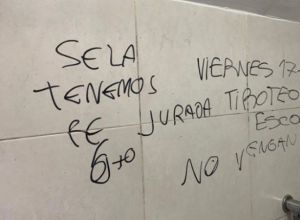 SELA
TENEMOS
FE JURADA
6to
VIERNES 17-
TIROTEO
ESCO
NO VENGAN